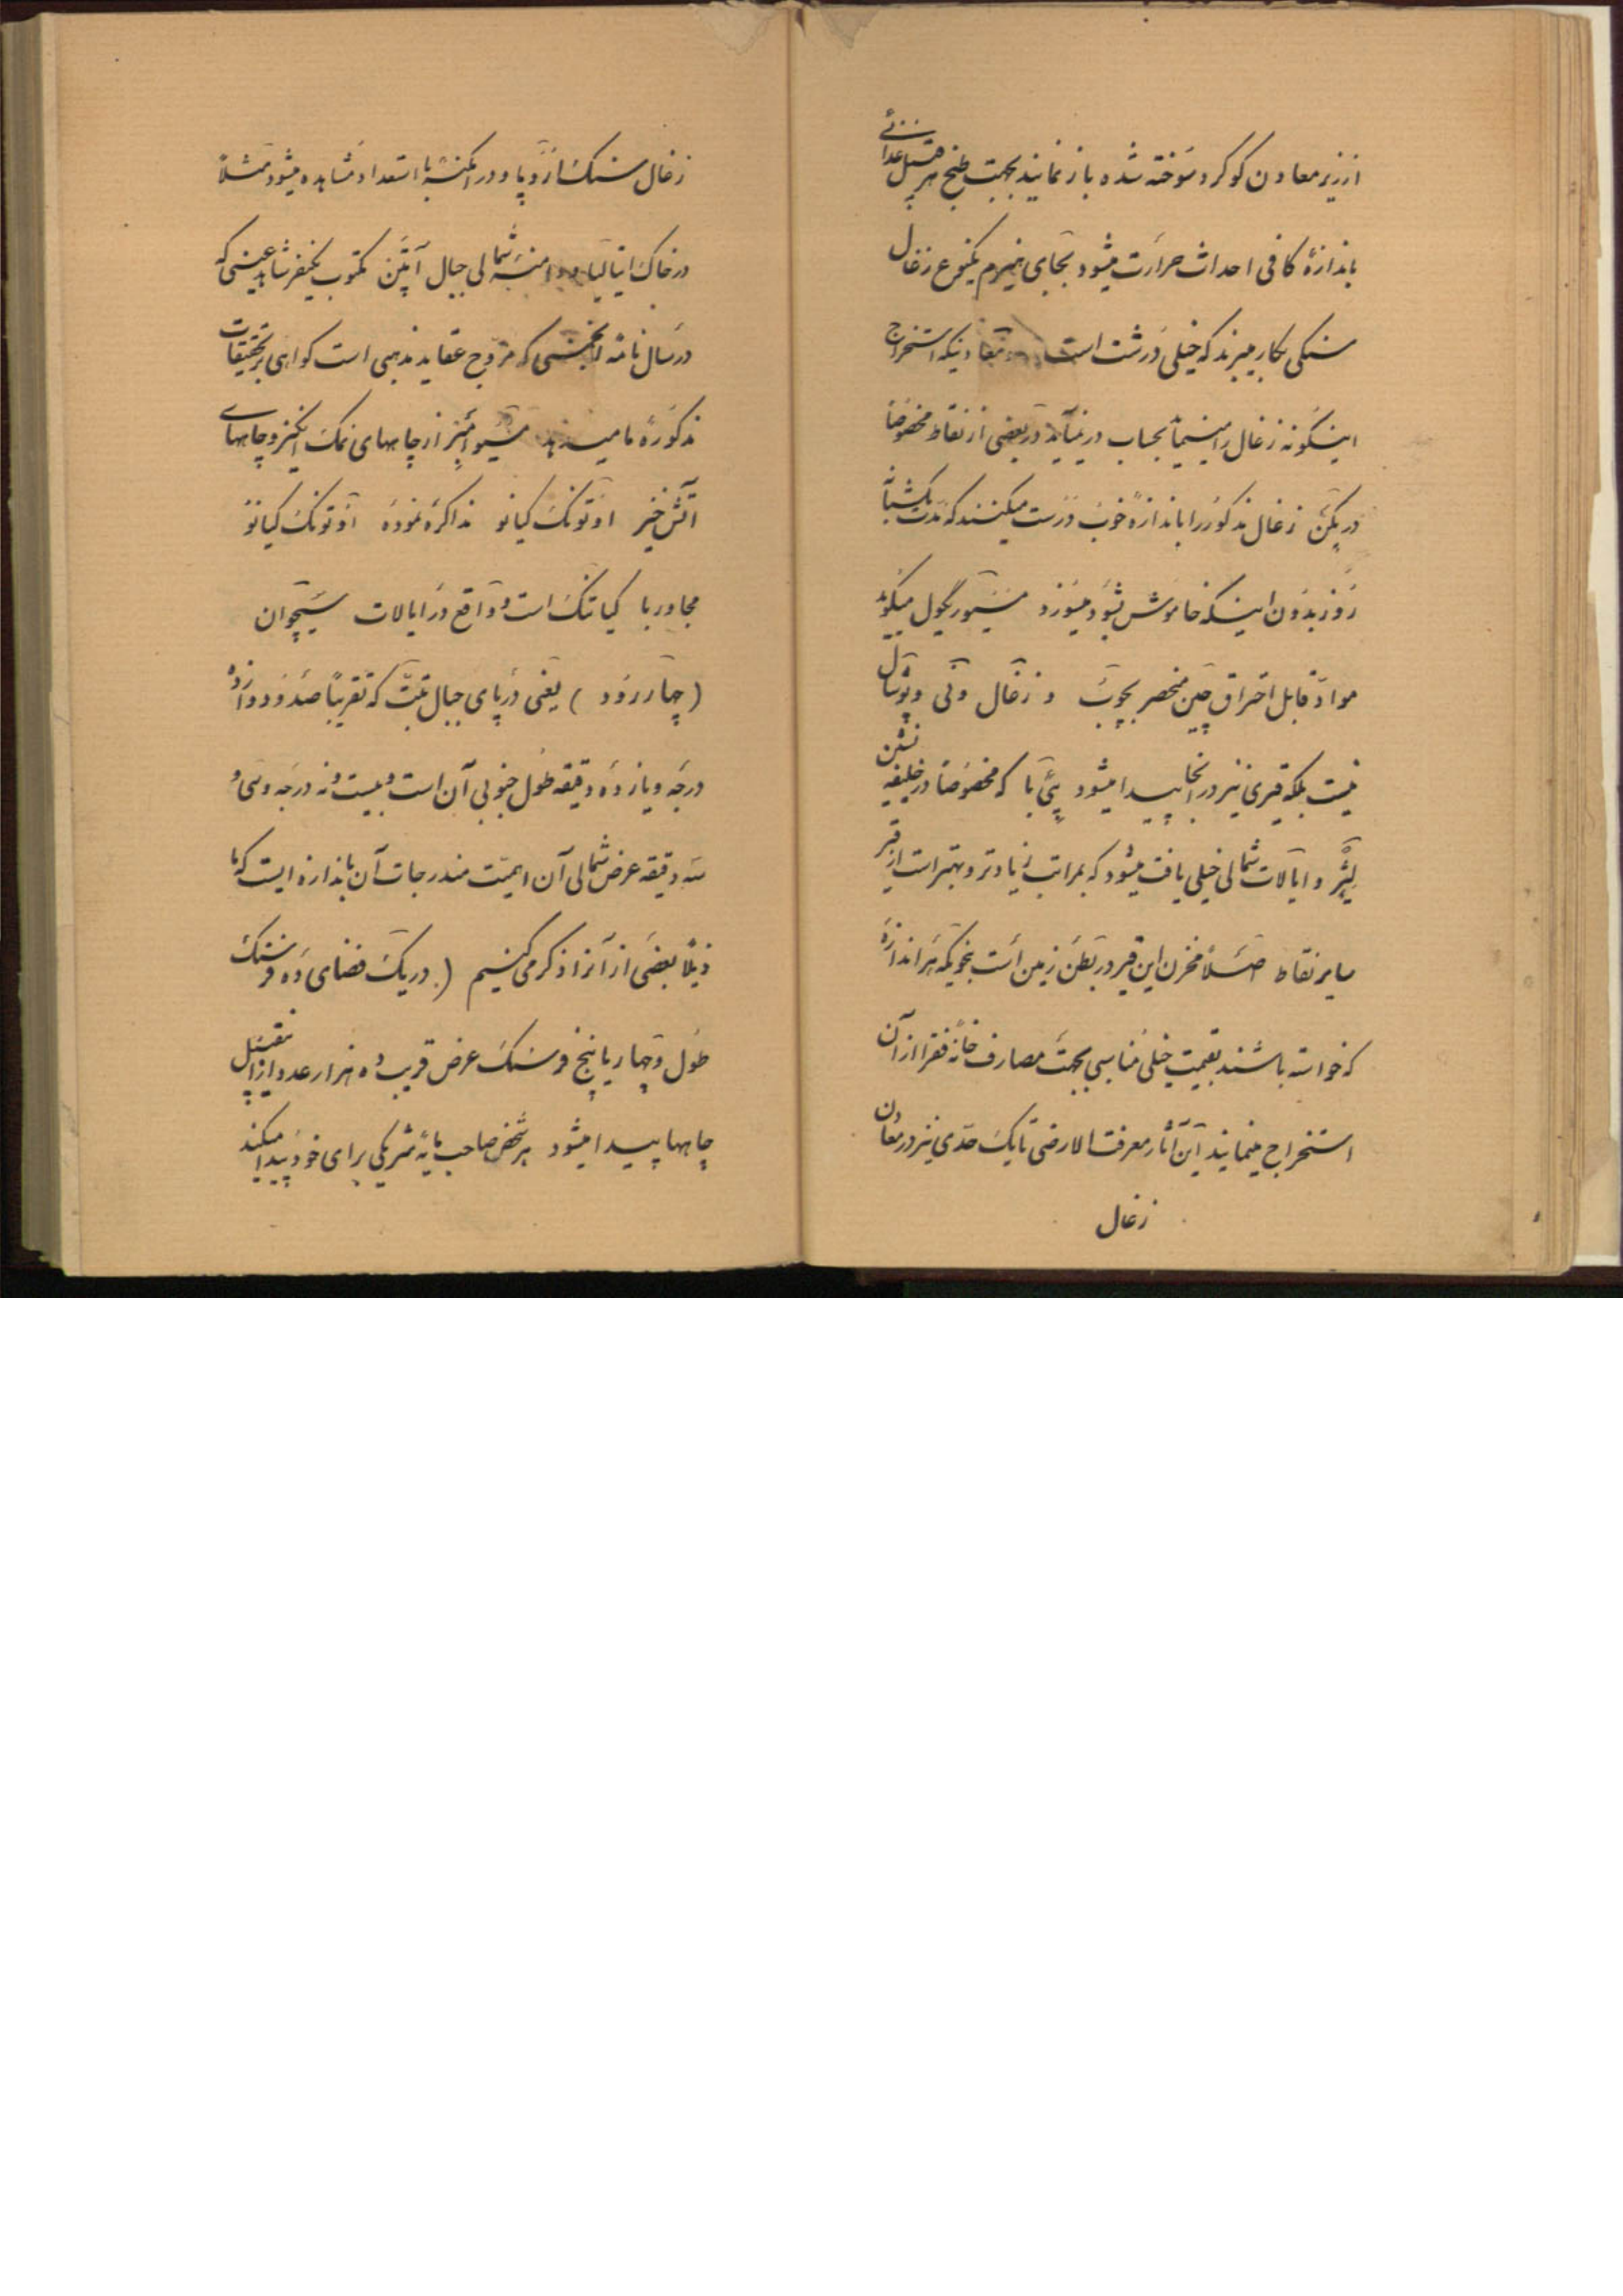 از زیر معادن کوکرد سوخته شده باز نمایند بجهت طبخ هر قبیل غذائی
باندازهٔ کافی احداث حرارت میشود بجای هیزم یکنوع زغال
سنکی بکار میبرند که خیلی درشت است معادنیکه استخراج
اینکونه زغال را مینمایند بحساب در نمیآید در بعضی از نقاط مخصوصا
در پکن زغال مذکور را باندازهٔ خوب درست میکنند که مدت یکشبانه
روز بدون اینکه خاموش بشود میسوزد مسیو ریکول میکوید
مواد قابل احتراق چین منحصر بچوب و زغال و نی و پوشال
نیست بلکه قیری نیز در آنجا پیدا میشود که مخصوصا در خلیفه نشین
و ایالات شمالی خیلی یافت میشود که بمراتب زیادتر و بهتر است از قیر
سایر نقاط اصلا مخزن این قیر در بطن زمین است بنحویکه هر اندازه
که خواسته باشند بقیمت خیلی مناسبی بجهت مصارف خانه فقرا از آن
استخراج مینمایند این آثار معرفت الارضی تا یک حدی نیز در معادن
زغال
زغال سنک اروپا و در امکنهٔ با استعداد مشاهده میشود مثلاً
در خاک ایتالیا و دامنهٔ شمالی جبال آپنن مکتوب یکنفر شاهد عینی که
در سال نامهٔ انجمنی که مروج عقاید مذهبی است کواهی بر تحقیقات
مذکورهٔ ما میدهد مسیو امبر از چاههای نمک انکیز و چاههای
آتش خیز اوتونک کیانو مذاکره نموده اوتونک کیانو
مجاور با کیاتنک است و واقع در ایالات سیچوان
(چهار رود) یعنی در پای جبال تبت که تقریباً صد و دوازده
درجه و یازده دقیقه طول جنوبی آن است و بیست و نه درجه و سی و
سه دقیقه عرض شمالی آن اهمیت مندرجات آن باندازه ایست که ما
ذیلاً بعضی از آنرا ذکر می کنیم (در یک فضای ده فرسنک
طول و چهار یا پنج فرسنک عرض قریب ده هزار عدد از این قبیل
چاهها پیدا میشود هر شخص صاحب مایه شریکی برای خود پیدا میکند